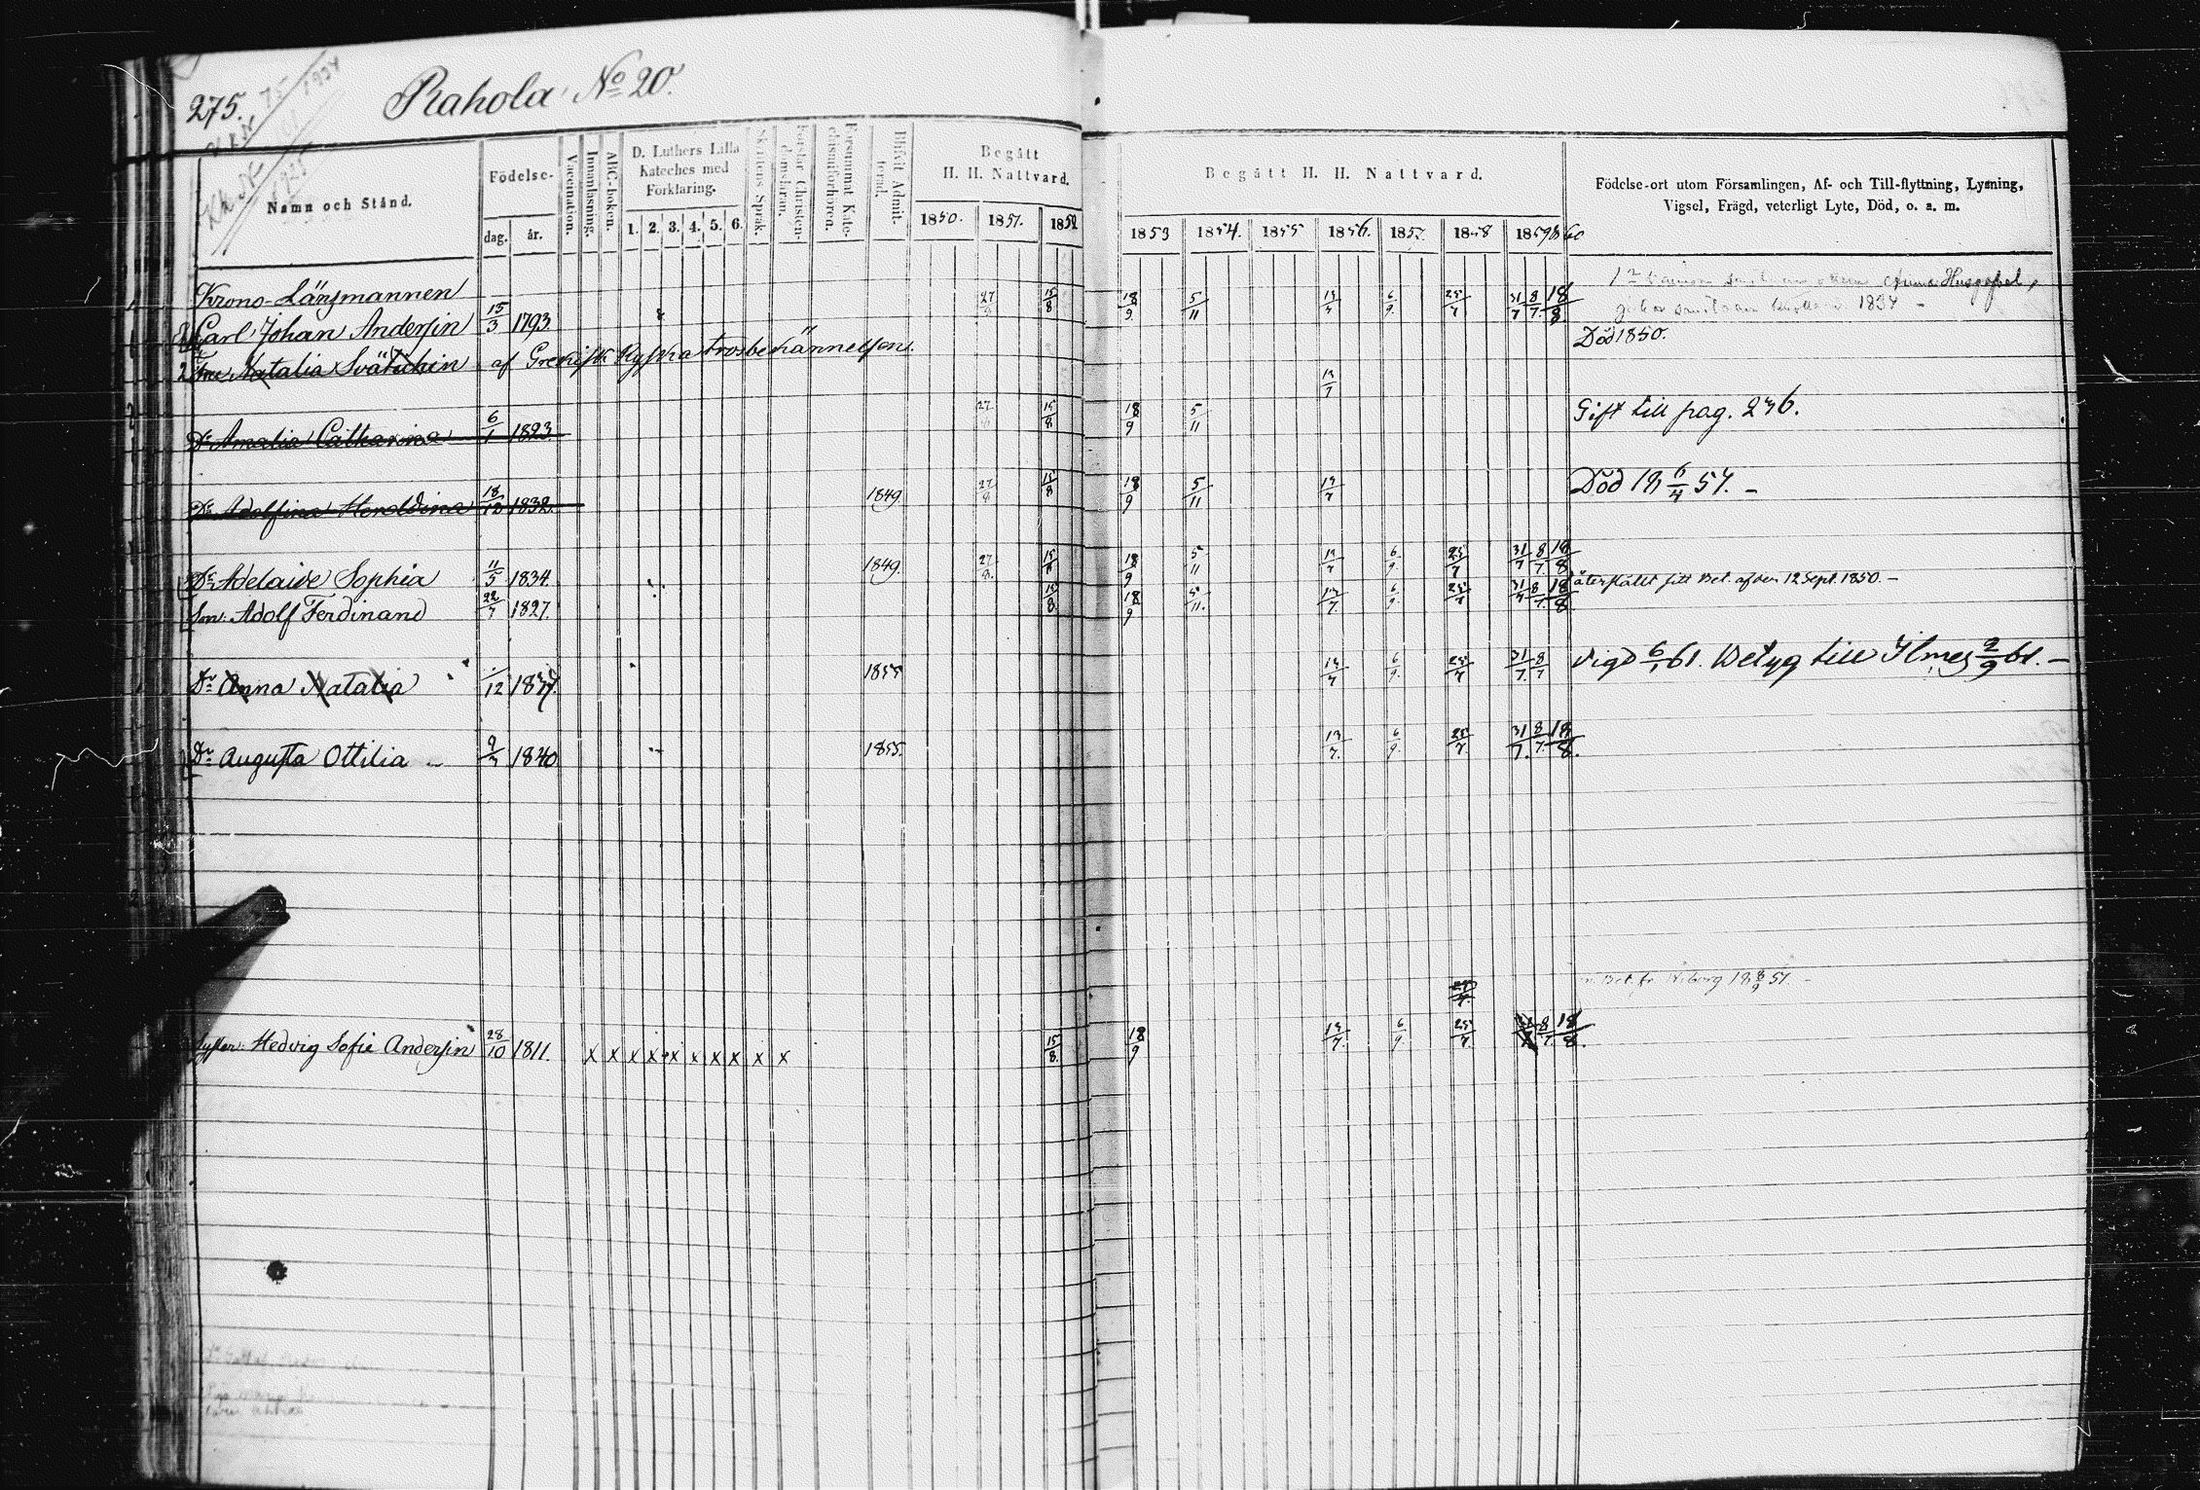 275.
Rahola No 20.
Namn och Stånd.
Födelse-
dag. år.
Vaccination.
Innanläsning.
ABC-boken.
D. Luthers Lilla Kateches med Förklaring.
1. 2. 3. 4. 5. 6.
Skriftens Språk.
Förstår Christendomsläran.
Försummat Katechismiförhören.
Blifvit Admitterad.
Begått H. H. Nattvard.
1850. 1851. 1852
Begått H. H. Nattvard.
1853 1854. 1855 1856. 1857. 1858 1859 60
Födelse-ort utom Församlingen, Af- och Till-flyttning, Lysning,
Vigsel, Frägd, veterligt Lyte, Död, o. a. m.
Krono-Länsmannen
Carl Johan Andersin 15/3 1793. 27 15/8 18/9 5/11 6/9 31/7 8/7 18/8
Natalia Svätichin af Grekisk Ryska trosbekännelsen. Död 1850.
Dr Amalia Catharina 6/1 1823. 27 15/8 18/9 5/11 Gift till pag. 246.
Dr Adolfina Heroldina 18/12 1832. 1849. 27/8 15/8 18/9 5/11 Död 18 6/4 57. –
Dr Adelaide Sophia 11/5 1834. 1849. 27/8 15/8 18/9 5/11 6/9 31/7 8/7 18/8
Son: Adolf Ferdinand 1827. 15/8 18/9 5/11. 6/9 31/7 8/7 18/8 återstält sitt Bet. af den 12 Sept. 1850. –
Dr Anna Natalia /12 1837. 1855 6/9 31/7 8/7 Vigd 61. Betyg till Ilmes 2/9 61. –
Dr Augusta Ottilia – 1840 1855. 6/9 31/7 8/7 18/8.
Bet. fr. Wiborg
Syster: Hedvig Sofie Andersin 28/10 1811. x x x x x x x x x x 15/8 18/9 6/9 8/7 18/8.